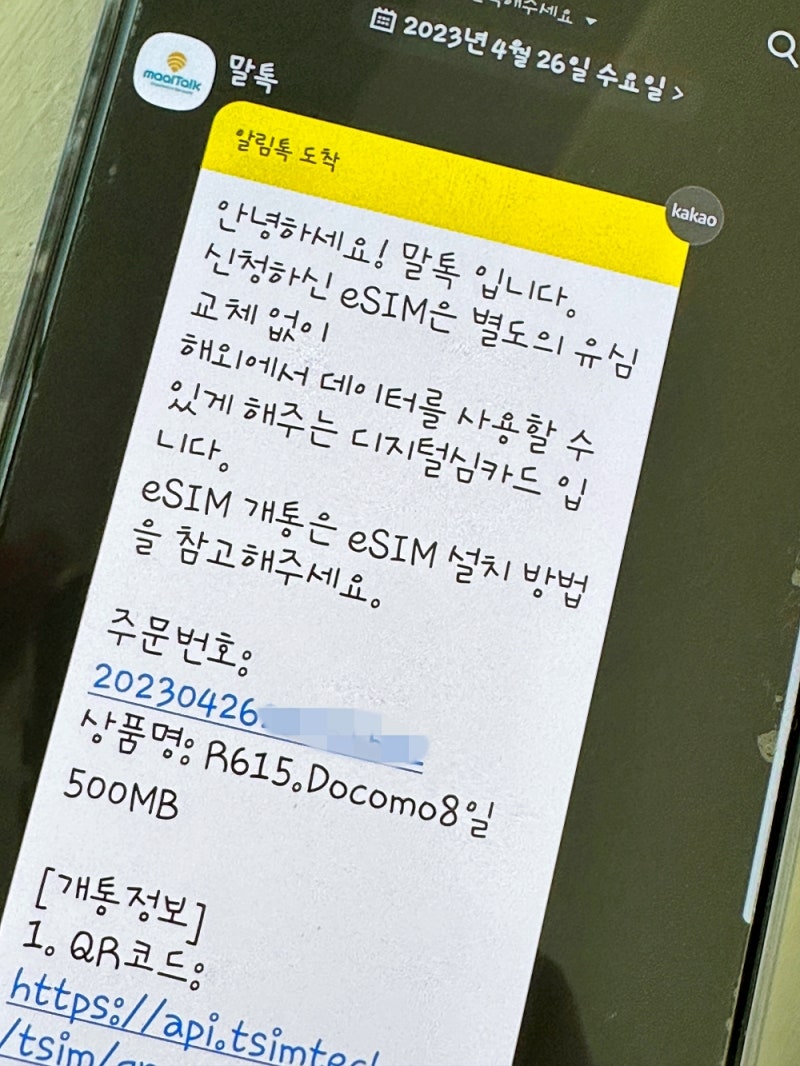 2023년 4월 26일 수요일 >
maalTalk
말톡
알림톡 도착
kakao
안녕하세요! 말톡 입니다.
신청하신 eSIM은 별도의 유심
교체 없이
해외에서 데이터를 사용할 수
있게 해주는 디지털심카드 입
니다.
eSIM 개통은 eSIM 설치 방법
을 참고해주세요.
주문번호:
20230426
상품명: R615.Docomo8일
500MB
[개통정보]
1. QR코드:
https://api.tsimtec
/tsim/